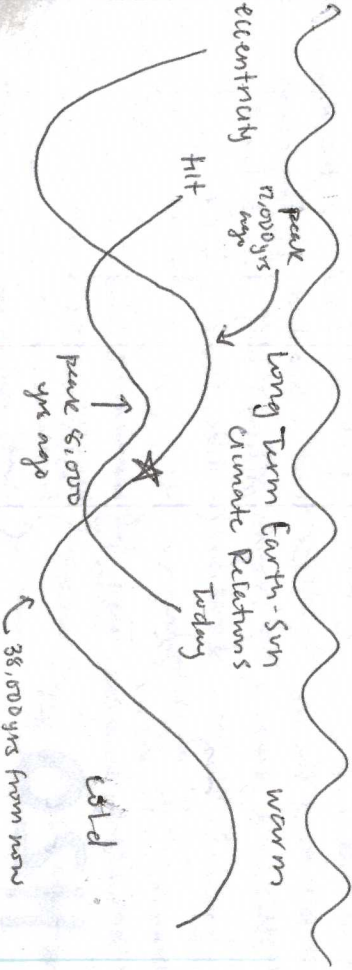 Long Term Earth-Sun
Climate Relations
warm
eccentricity
tilt
peak
12,000yrs
ago
peak 8,000
yrs ago
Today
cold
38,000yrs from now